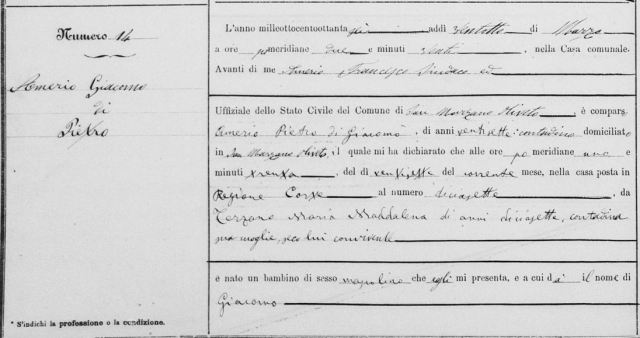 Numero 14
Amerio Giacomo
di
Pietro
* S'indichi la professione o la condizione.
L'anno milleottocentoottanta sei addì ventotto di Marzo
a ore pomeridiane due e minuti venti, nella Casa comunale.
Avanti di me Amerio Francesco Sindaco ed
Uffiziale dello Stato Civile del Comune di San Marzano Oliveto, è compars
Amerio Pietro di Giacomo, di anni ventisette contadino domiciliato
in San Marzano Oliveto, il quale mi ha dichiarato che alle ore pomeridiane una e
minuti trenta, del dì ventisette del corrente mese, nella casa posta in
Regione Corse al numero diciasette, da
Terzano Maria Maddalena di anni diciasette, contadina
sua moglie, seco lui convivente
è nato un bambino di sesso mascolino che egli mi presenta, e a cui dà il nome di
Giacomo